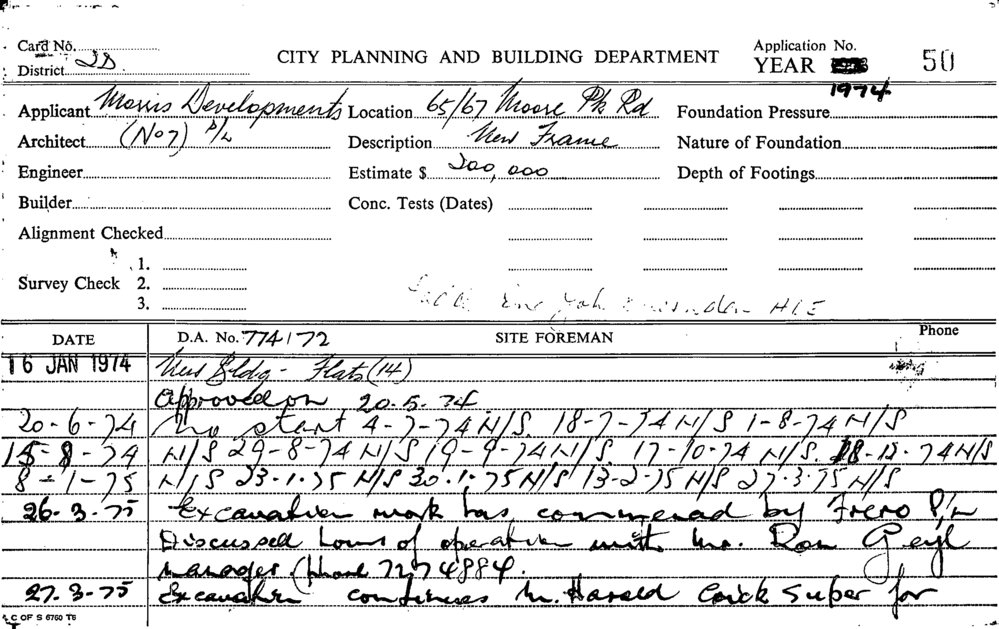 Card No.
District 2D
CITY PLANNING AND BUILDING DEPARTMENT
Application No.
YEAR 1974
50
Applicant Morris Developments Location 65/67 Moore Pk Rd Foundation Pressure
Architect (No 7) P/L Description New Frame Nature of Foundation
Engineer Estimate $ 200,000 Depth of Footings
Builder Conc. Tests (Dates)
Alignment Checked
Survey Check 1.
2.
3.
DATE D.A. No. 774/72 SITE FOREMAN Phone
16 JAN 1974 New Bldg - Flats (14)
Approved on 20.5.74
20-6-74 No start 4-7-74 N/S. 18-7-74 N/S 1-8-74 N/S
15-8-74 N/S 29-8-74 N/S 19-9-74 N/S 17-10-74 N/S. 18-12-74 N/S
8-1-75 N/S 23-1-75 N/S 30-1-75 N/S 13-2-75 N/S 27-3-75 N/S
26-3-75 Excavation work has commenced by Frero P/L
Discussed hours of operation with Mr. Ron Geyl
manager (phone 7274884.
27-3-75 Excavation continues Mr. Harold Crick Super for
C OF S 6760 T6